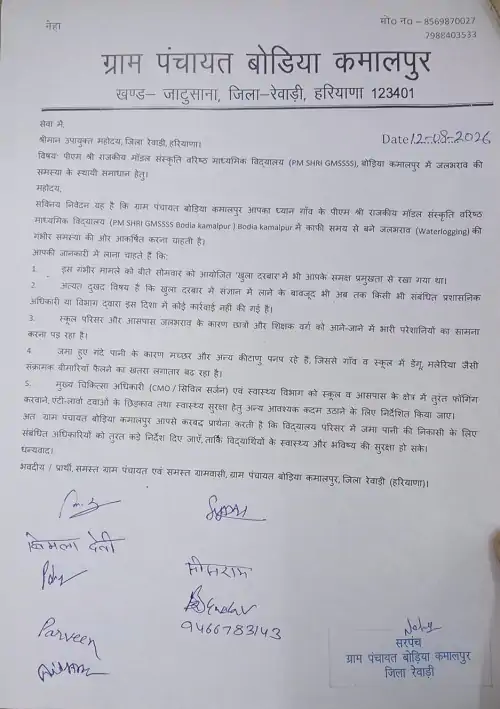 नेहा
मो० न० – 8569870027
7988403533
ग्राम पंचायत बोडिया कमालपुर
खण्ड– जाटुसाना, जिला–रेवाड़ी, हरियाणा 123401
सेवा में,
श्रीमान उपायुक्त महोदय, जिला रेवाड़ी, हरियाणा।
Date 12-08-2026
विषय: पीएम श्री राजकीय मॉडल संस्कृति वरिष्ठ माध्यमिक विद्यालय (PM SHRI GMSSSS), बोड़िया कमालपुर में जलभराव की
समस्या के स्थायी समाधान हेतु।
महोदय,
सविनय निवेदन यह है कि ग्राम पंचायत बोड़िया कमालपुर आपका ध्यान गाँव के पीएम श्री राजकीय मॉडल संस्कृति वरिष्ठ
माध्यमिक विद्यालय (PM SHRI GMSSSS Bodia kamalpur ) Bodia kamalpur में काफी समय से बने जलभराव (Waterlogging) की
गंभीर समस्या की ओर आकर्षित करना चाहती है।
आपकी जानकारी में लाना चाहते हैं कि:
1. इस गंभीर मामले को बीते सोमवार को आयोजित 'खुला दरबार' में भी आपके समक्ष प्रमुखता से रखा गया था।
2. अत्यंत दुखद विषय है कि खुला दरबार में संज्ञान में लाने के बावजूद भी अब तक किसी भी संबंधित प्रशासनिक
अधिकारी या विभाग द्वारा इस दिशा में कोई कार्रवाई नहीं की गई है।
3. स्कूल परिसर और आसपास जलभराव के कारण छात्रों और शिक्षक वर्ग को आने-जाने में भारी परेशानियों का सामना
करना पड़ रहा है।
4. जमा हुए गंदे पानी के कारण मच्छर और अन्य कीटाणु पनप रहे हैं, जिससे गाँव व स्कूल में डेंगू, मलेरिया जैसी
संक्रामक बीमारियाँ फैलने का खतरा लगातार बढ़ रहा है।
5. मुख्य चिकित्सा अधिकारी (CMO / सिविल सर्जन) एवं स्वास्थ्य विभाग को स्कूल व आसपास के क्षेत्र में तुरंत फॉगिंग
करवाने, एंटी-लार्वा दवाओं के छिड़काव तथा स्वास्थ्य सुरक्षा हेतु अन्य आवश्यक कदम उठाने के लिए निर्देशित किया जाए।
अतः ग्राम पंचायत बोड़िया कमालपुर आपसे करबद्ध प्रार्थना करती है कि विद्यालय परिसर में जमा पानी की निकासी के लिए
संबंधित अधिकारियों को तुरंत कड़े निर्देश दिए जाएँ, ताकि विद्यार्थियों के स्वास्थ्य और भविष्य की सुरक्षा हो सके।
धन्यवाद।
भवदीय / प्रार्थी, समस्त ग्राम पंचायत एवं समस्त ग्रामवासी, ग्राम पंचायत बोड़िया कमालपुर, जिला रेवाड़ी (हरियाणा)।
बिमला देवी
भीमराम
9466783143
Parveen
Neha
सरपंच
ग्राम पंचायत बोड़िया कमालपुर
जिला रेवाड़ी